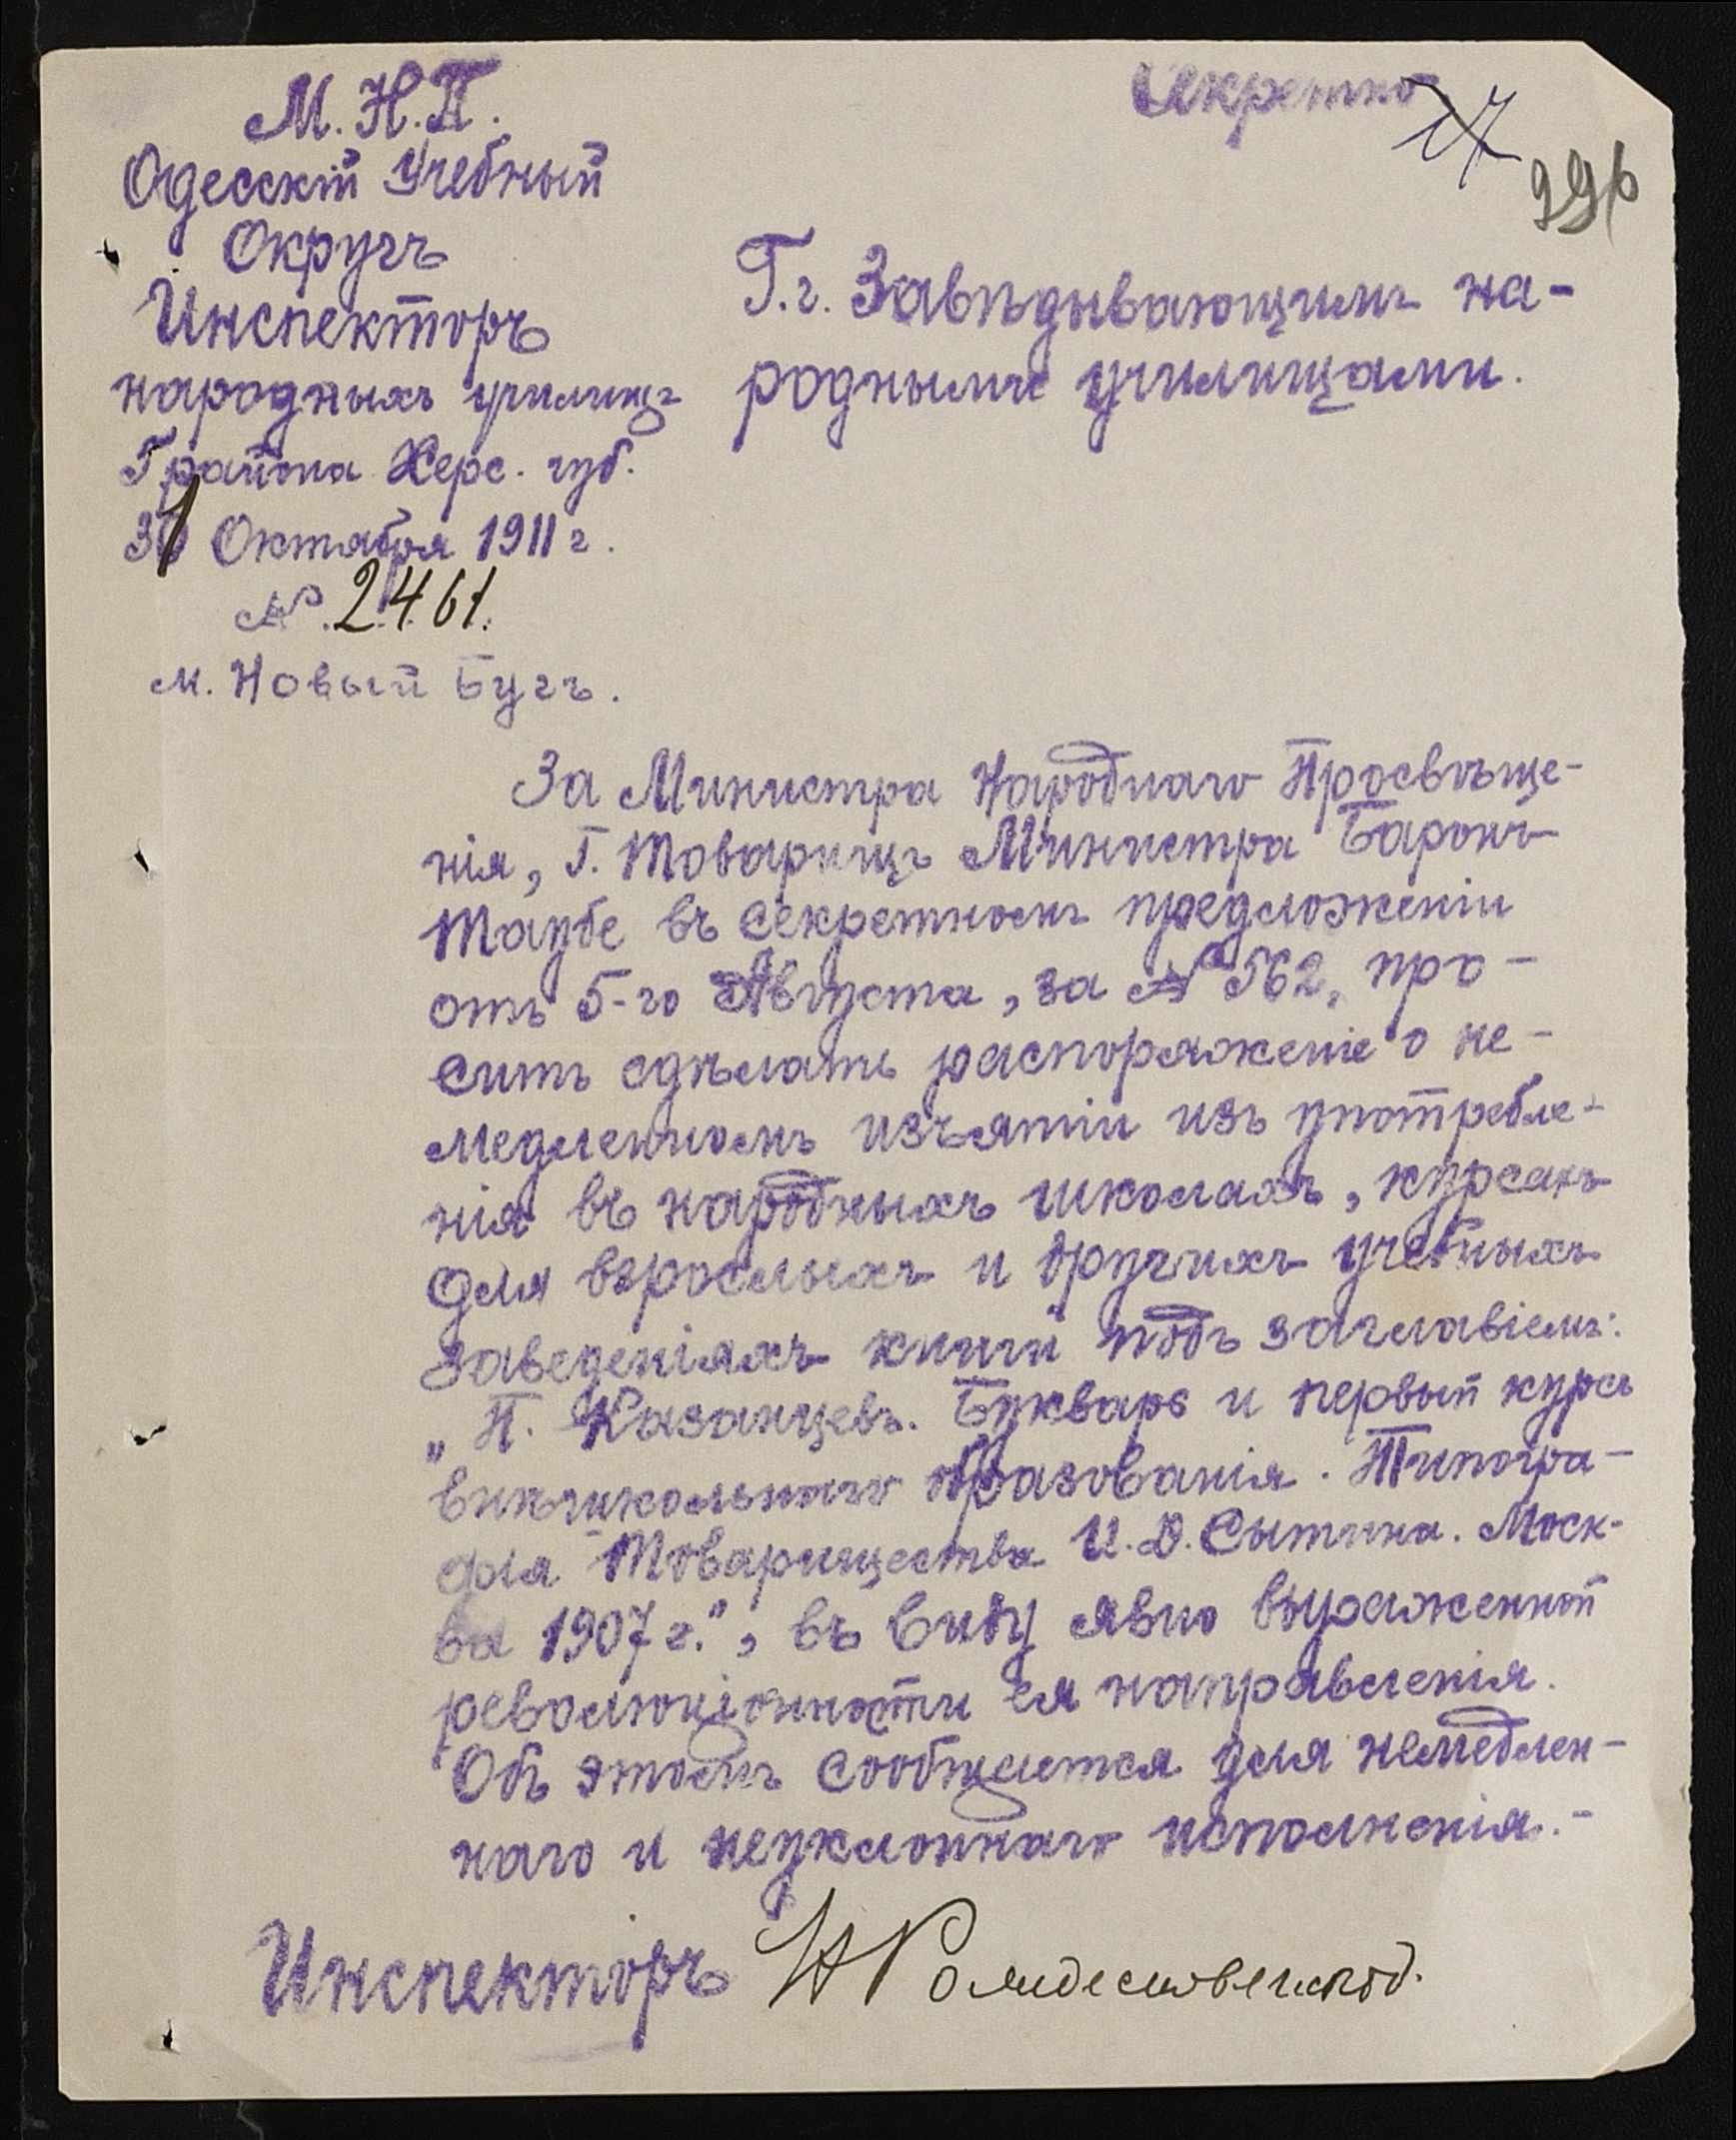 Секретно
17
296
М. Н. П.
Одесскій Учебный
Округъ
Инспекторъ
народныхъ училищъ
района Херс. губ.
31 Октября 1911 г.
№. 2461.
м. Новый Бугъ.
Г.г. Завѣдывающимъ на-
родными училищами.
За Министра Народнаго Просвѣще-
нія, Г. Товарищъ Министра Баронъ
Таубе въ секретномъ предложеніи
отъ 5-го Августа, за № 562, про-
ситъ сдѣлать распоряженіе о не-
медленномъ изъятіи изъ употребле-
нія въ народныхъ школахъ, курсахъ
для взрослыхъ и другихъ учебныхъ
заведеніяхъ книги подъ заглавіемъ:
„П. Казанцевъ. Букварь и первый курсъ
внѣшкольнаго образованія. Типогра-
фія Товарищества И. Д. Сытина. Моск-
ва 1907 г.", въ виду явно выраженной
революціонности ея направленія.
Объ этомъ сообщается для немедлен-
наго и неуклоннаго исполненія.-
Инспекторъ